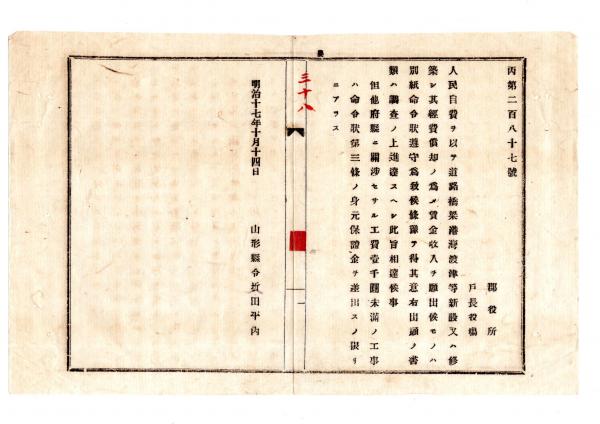 丙第二百八十七號
郡役所
戸長役場
人民自費ヲ以テ道路橋梁港海渡津等新設又ハ修
築シ其經費償却ノ爲メ賃金收入ヲ願出候モノハ
別紙命令狀遵守爲致候條課ヲ得其意右出願ノ書
類ハ調査ノ上進達スヘシ此旨相達候事
但他府縣ニ關涉セサル工費壹千圓未滿ノ工事
ハ命令狀第三條ノ身元保證金ヲ差出スノ限リ
ニアラス
三十八
明治十七年十月十四日
山形縣令折田平內